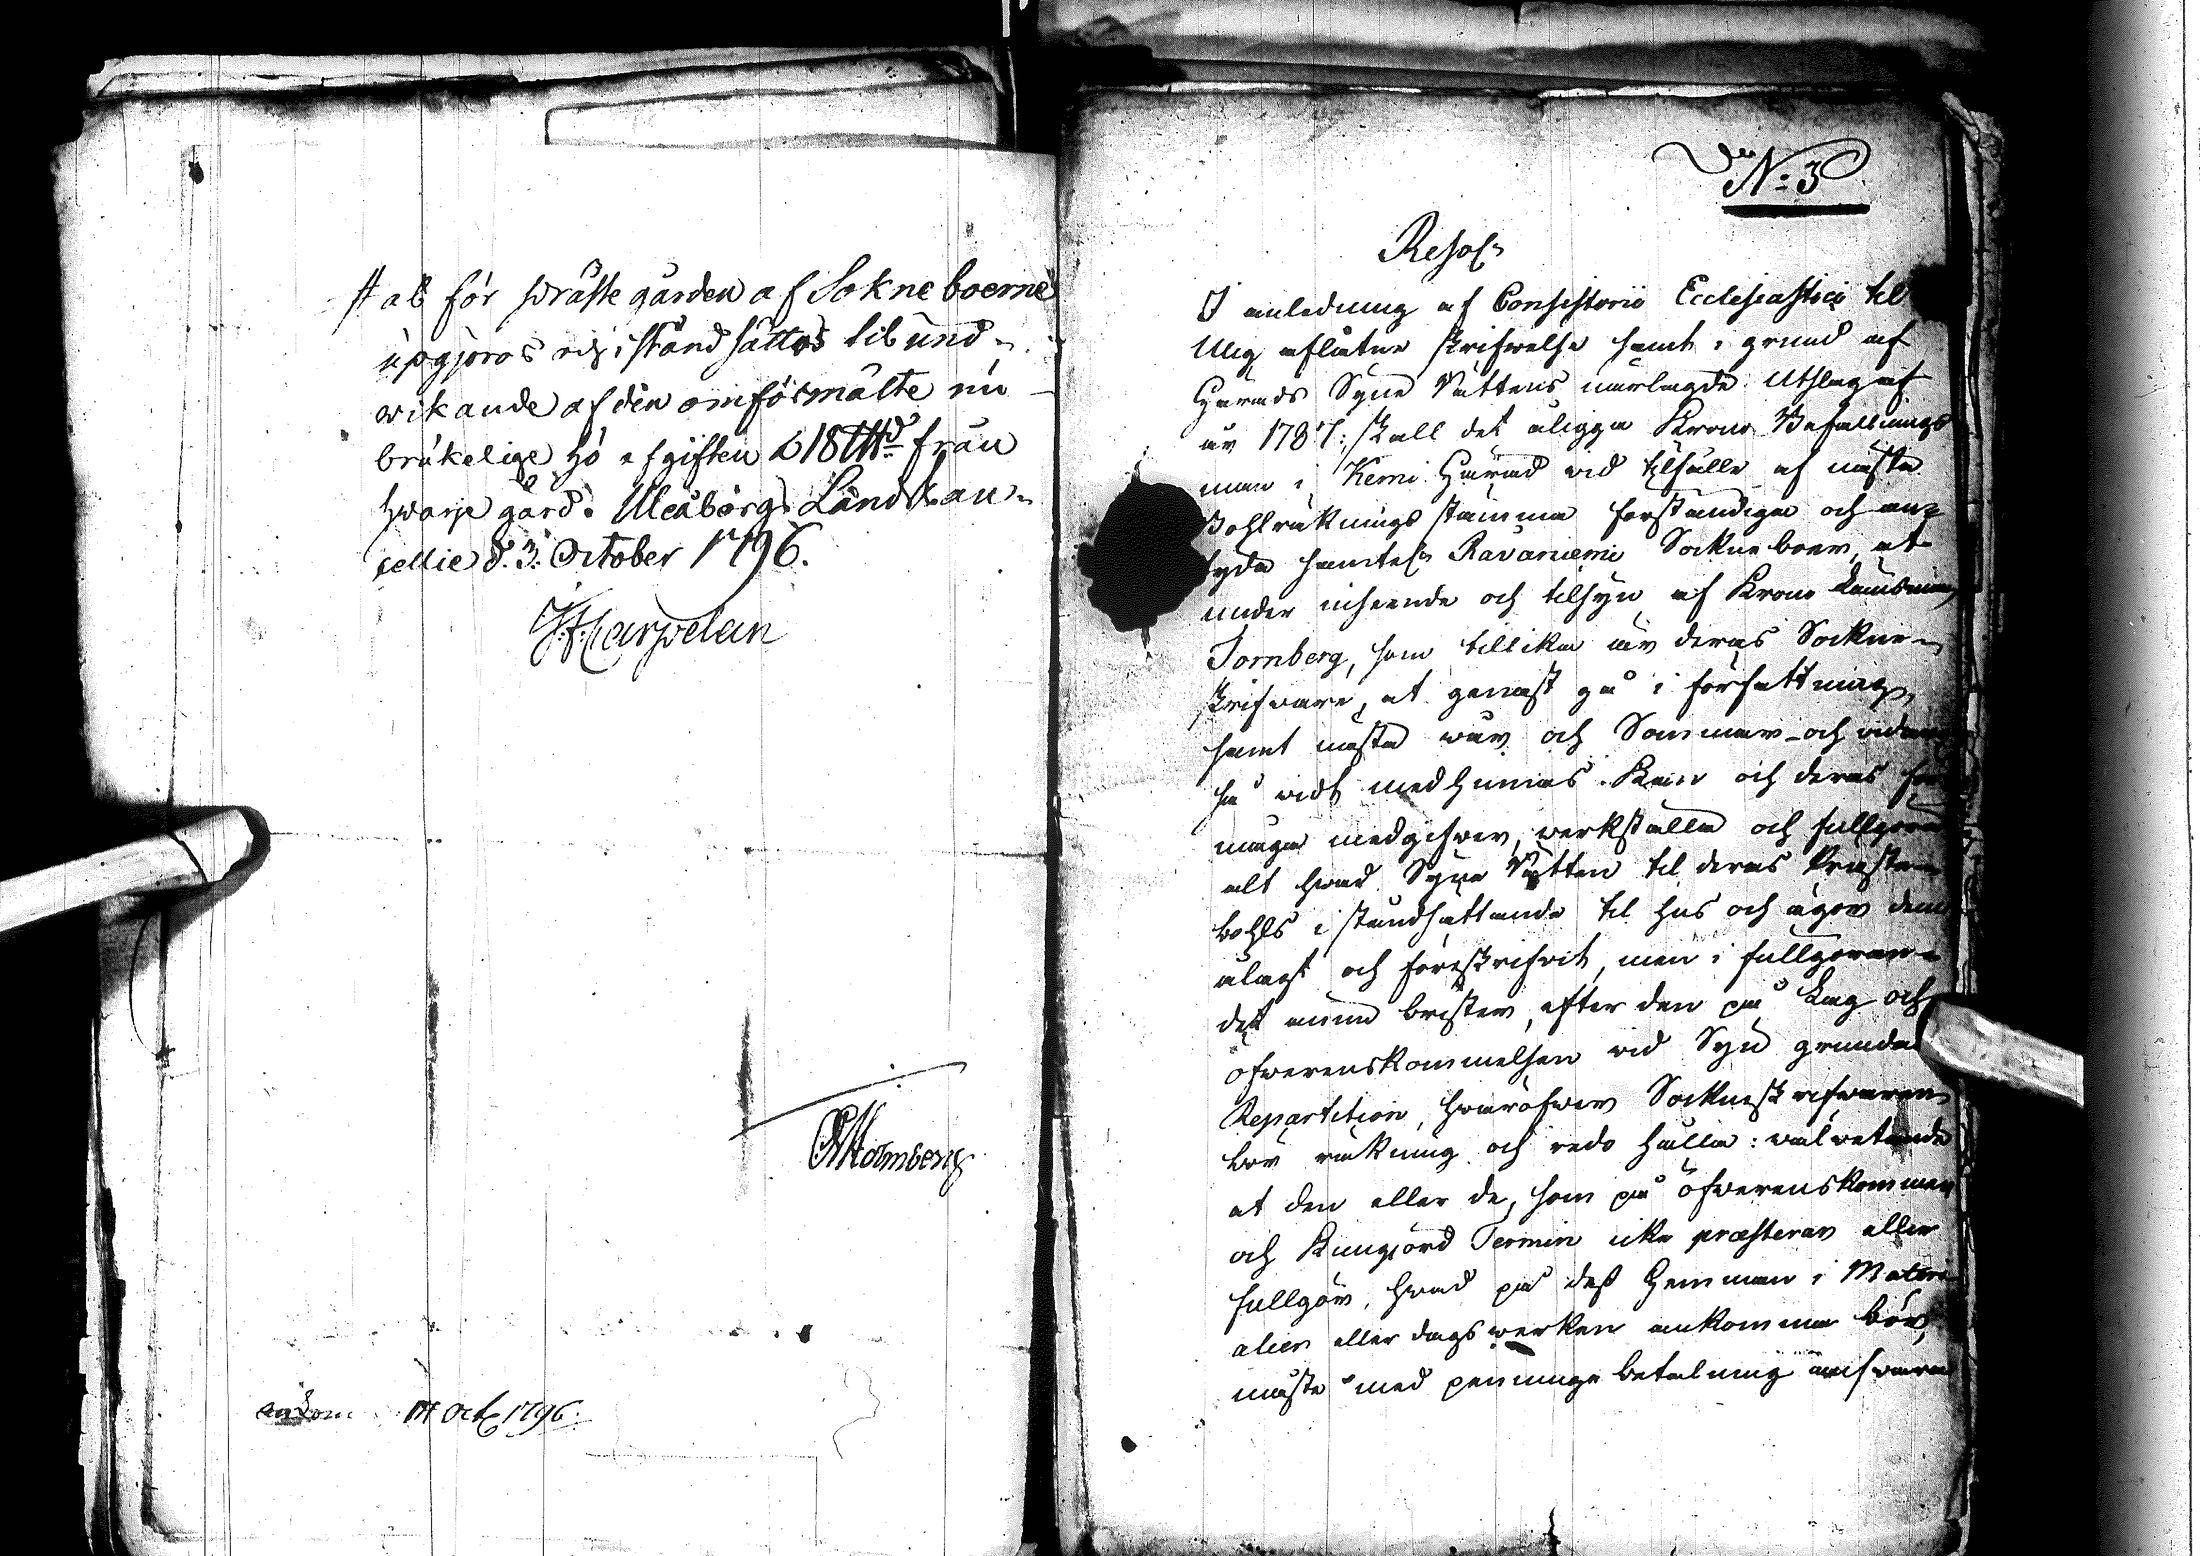 stal för Prästegården af Sokneboerne
upgjöras och i stånd sättas til und-
wikande af den omförmälte nu
brukelige hö afgiften á 18 ℔ från
hwarje gård. Uleåborgs Landtkan-
cellie d. 3. October 1796.
J.F. Carpelan
Holmberg
ankom 17 Oct 1796.
N:3
Resol:
I anledning af Consistorii Ecclesiastici til
Mig aflåtne skrifwelse samt i grund af
Härads Syne Rättens närlagde Utslag af
år 1787: skall det åligga Krono Befallnings
man i Kemi Härad wid tilfälle af nästa
Bohlräknings stämma förständiga och an-
tyda samtel: Ravaniemi Sockne boer, at
under inseende och tilsyn af Krono Länsman
Tornberg, som tillika är deras Sockne-
skrifware, at genast gå i författning,
samt nästa wår och Sommar och widare
så widt medhinnas kan och deras
medgifwer, werkställa och fullgöra
alt hwad Syne Rätten til deras Präste-
bohls i ståndsättande til hus och ägor dem
ålagt och föreskrifvit, men i fullgöran-
det ännu brister, efter den på Lag och
öfwerenskommelsen wid Syn grundade
Repartition, hwaröfwer Sockneskrifwaren
bör räkning och redo hålla: wälwetande
at den eller de, som på öfwerenskommen
och kungjord Termin icke præsterar eller
fullgör, hwad på dess Hemman i Materi-
alier eller dagswerken ankomma bör,
måste med penninge betalning answara